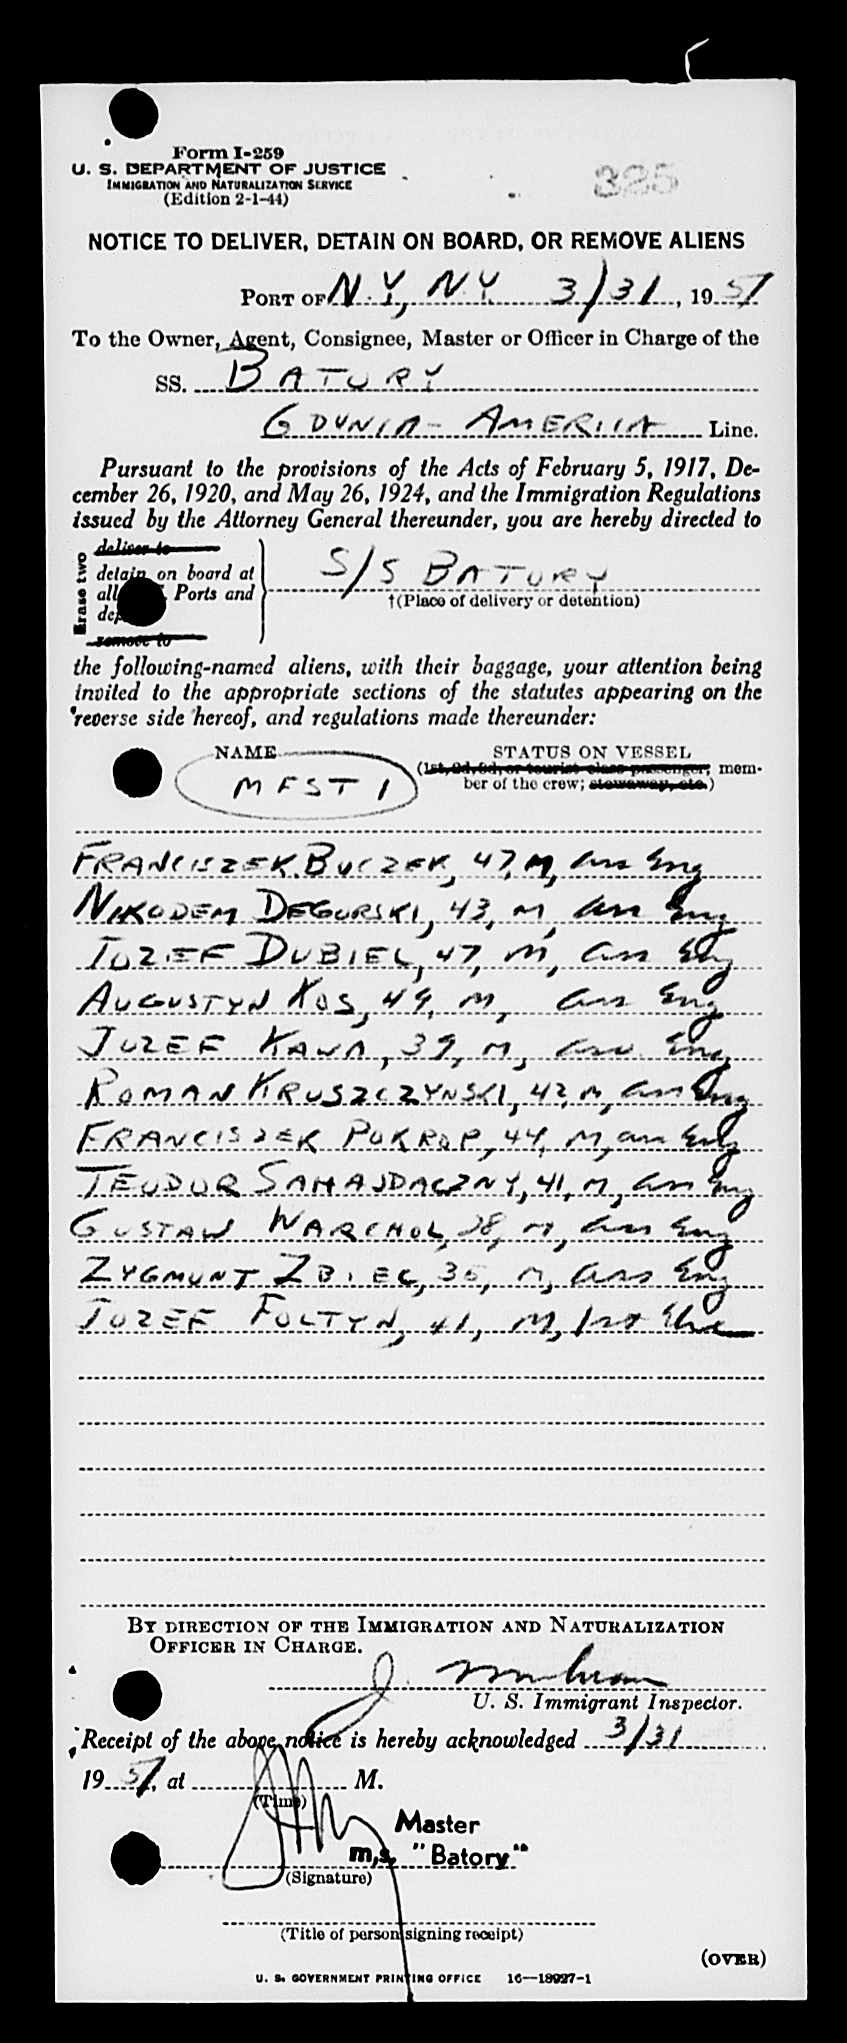 Form I-259
U. S. DEPARTMENT OF JUSTICE
IMMIGRATION AND NATURALIZATION SERVICE
(Edition 2-1-44)
325
NOTICE TO DELIVER, DETAIN ON BOARD, OR REMOVE ALIENS
PORT OF N.Y., N.Y. 3/31, 1951
To the Owner, Agent, Consignee, Master or Officer in Charge of the
SS. BATORY
GDYNIA-AMERICA Line.
Pursuant to the provisions of the Acts of February 5, 1917, De-
cember 26, 1920, and May 26, 1924, and the Immigration Regulations
issued by the Attorney General thereunder, you are hereby directed to
Erase two
deliver to
detain on board at
all Ports and
remove to
S/S BATORY
†(Place of delivery or detention)
the following-named aliens, with their baggage, your attention being
invited to the appropriate sections of the statutes appearing on the
reverse side hereof, and regulations made thereunder:
NAME STATUS ON VESSEL
(1st, 2d, 3d, or tourist class passenger; mem-
MFST 1 ber of the crew; stowaway, etc.)
FRANCISZEK BUCZEK, 47, M, ass Eng
NIKODEM DEGORSKI, 43, M, ass Eng
JOZEF DUBIEL, 47, M, ass Eng
AUGUSTYN KOS, 49, M, ass Eng
JOZEF KAWA, 39, M, ass Eng
ROMAN KRUSZCZYNSKI, 42, M, ass Eng
FRANCISZEK POKROP, 44, M, ass Eng
TEODOR SAHAJDACZNY, 41, M, ass Eng
GUSTAW WARCHOL, 28, M, ass Eng
ZYGMUNT ZBIEC, 35, M, ass Eng
JOZEF FOLTYN, 41, M, 1st
BY DIRECTION OF THE IMMIGRATION AND NATURALIZATION
OFFICER IN CHARGE.
J.
U. S. Immigrant Inspector.
Receipt of the above notice is hereby acknowledged 3/31
1951, at M.
(Time)
Master
m.s. "Batory"
(Signature)
(Title of person signing receipt)
(OVER)
U. S. GOVERNMENT PRINTING OFFICE 16—18927-1